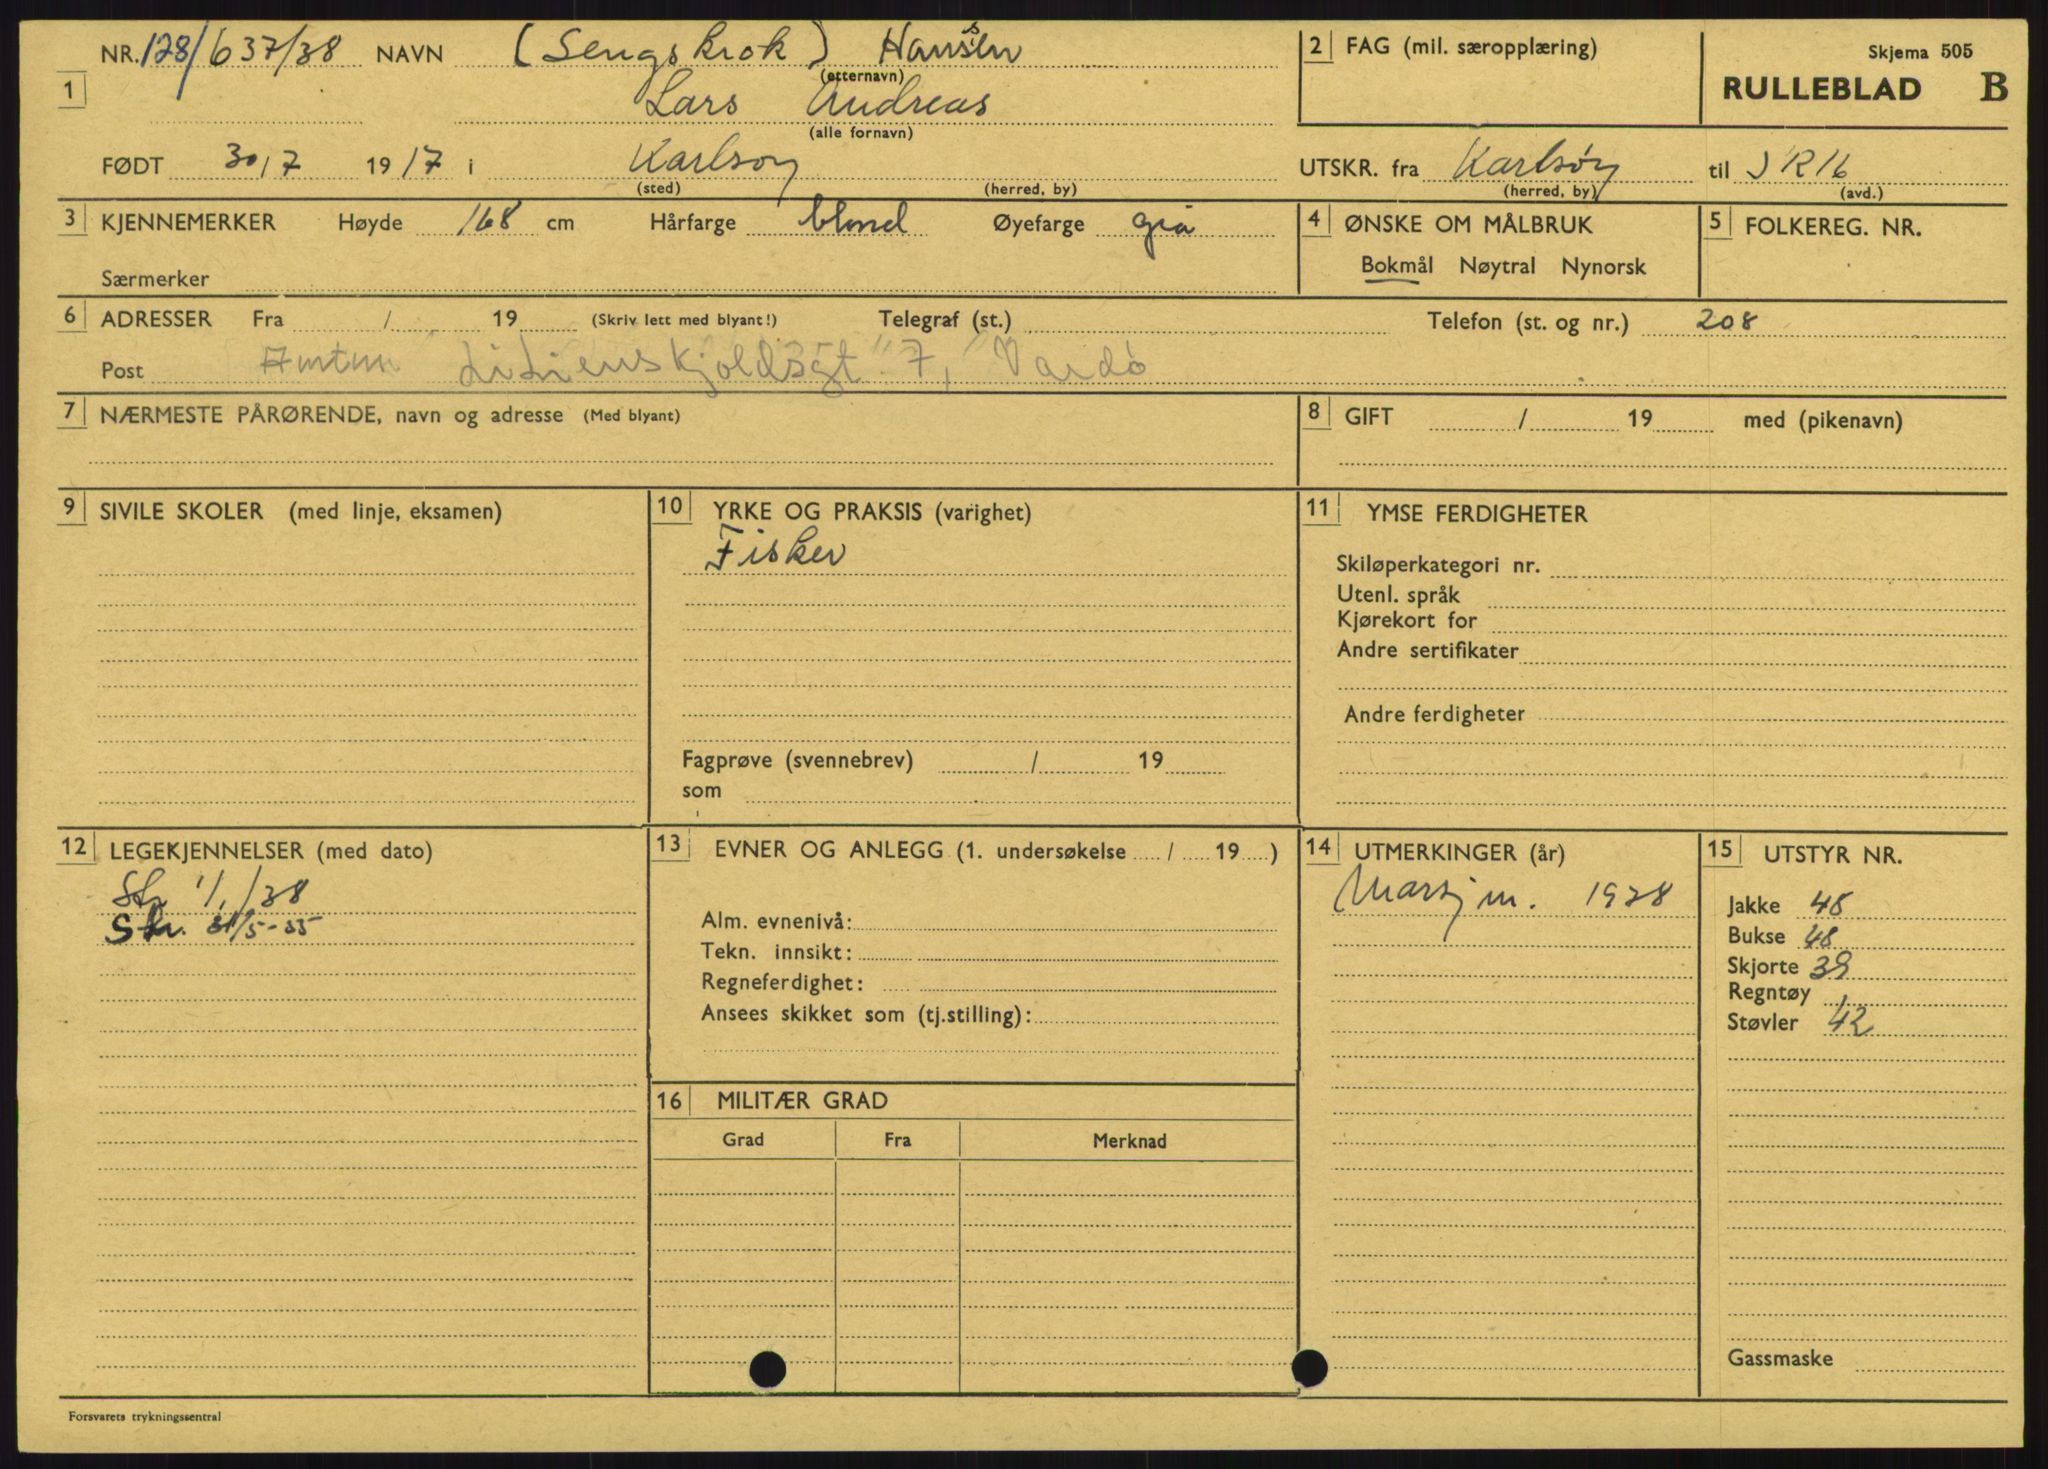 NR. 128/637/38 NAVN (Sengskrok) Hanssen
(etternavn)
1 Lars Andreas
(alle fornavn)
FØDT 30/7 1917 i Karlsøy
(sted) (herred, by)
2 FAG (mil. særopplæring)
Skjema 505
RULLEBLAD B
UTSKR. fra Karlsøy til IR16
(herred, by) (avd.)
3 KJENNEMERKER Høyde 168 cm Hårfarge blond Øyefarge grå
Særmerker
4 ØNSKE OM MÅLBRUK
Bokmål Nøytral Nynorsk
5 FOLKEREG. NR.
6 ADRESSER Fra / 19 (Skriv lett med blyant!) Telegraf (st.) Telefon (st. og nr.) 208
Post Lilienskjoldsgt 7, Vardø
7 NÆRMESTE PÅRØRENDE, navn og adresse (Med blyant)
8 GIFT / 19 med (pikenavn)
9 SIVILE SKOLER (med linje, eksamen)
10 YRKE OG PRAKSIS (varighet)
Fisker
Fagprøve (svennebrev) / 19
som
11 YMSE FERDIGHETER
Skiløperkategori nr.
Utenl. språk
Kjørekort for
Andre sertifikater
Andre ferdigheter
12 LEGEKJENNELSER (med dato)
Str 1/1/38
Str. 31/5-55
13 EVNER OG ANLEGG (1. undersøkelse / 19 )
Alm. evnenivå:
Tekn. innsikt:
Regneferdighet:
Ansees skikket som (tj.stilling):
14 UTMERKINGER (år)
1938
15 UTSTYR NR.
Jakke 48
Bukse 48
Skjorte 39
Regntøy
Støvler 42
Gassmaske
16 MILITÆR GRAD
Grad Fra Merknad
Forsvarets trykningssentral